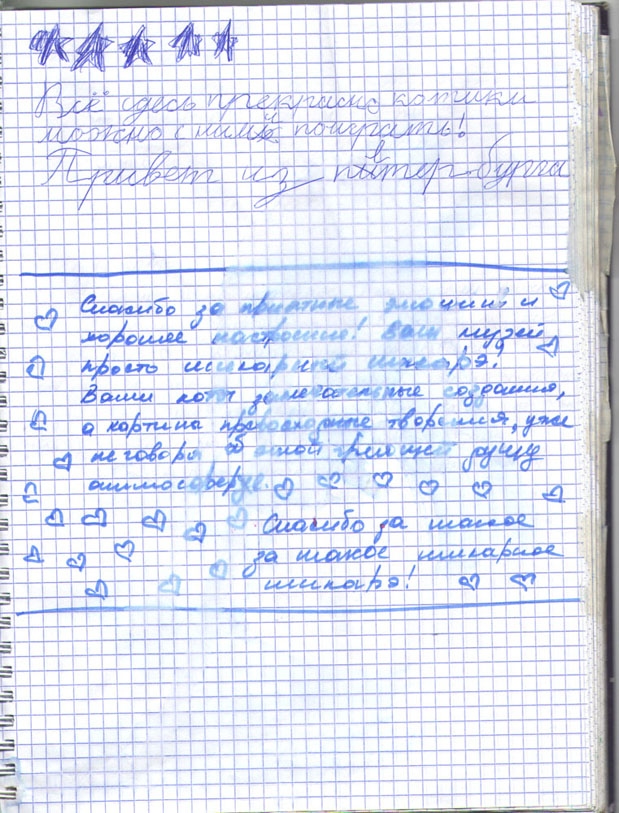 Всё сдесь прекрасно котики
можно с ними поиграть!
Привет из питер-бурга
Спасибо за приятные эмоции и
хорошее настроение! Ваш музей
прость шикарный шикарэ!
Ваши коты замечательные создания,
а картины превосходные творения, уже
не говоря об этой греющей душу
атмосфере.
Спасибо за такое
за такое шикарное
шикарэ!